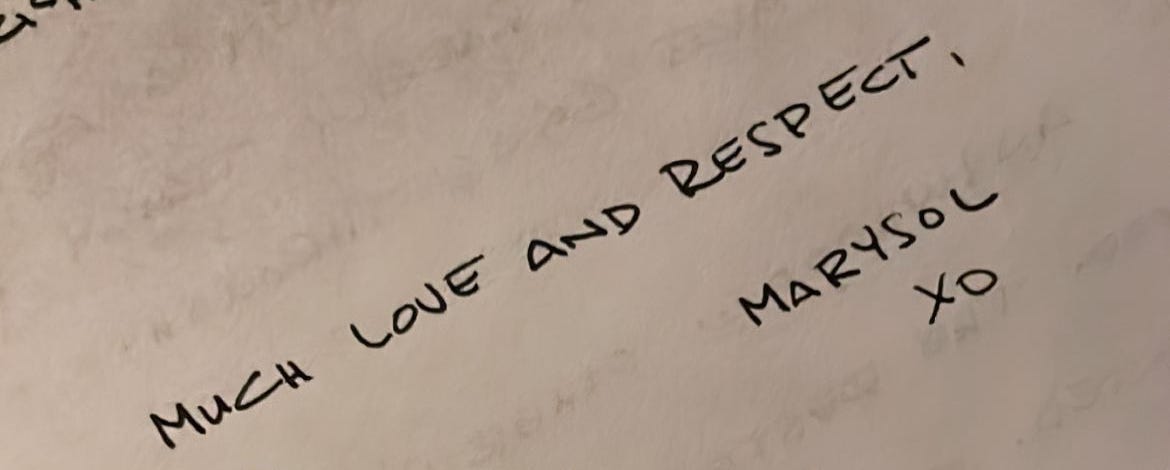 MUCH LOVE AND RESPECT,
MARYSOL
XO